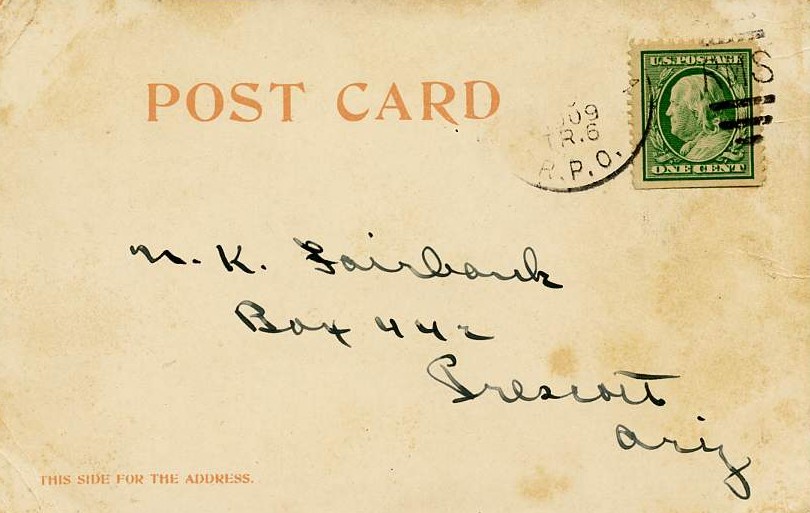 POST CARD
U.S. POSTAGE
ONE CENT
RMS
1909
TR.6
R.P.O.
N. K. Fairbank
Box 442
Prescott
Ariz
THIS SIDE FOR THE ADDRESS.